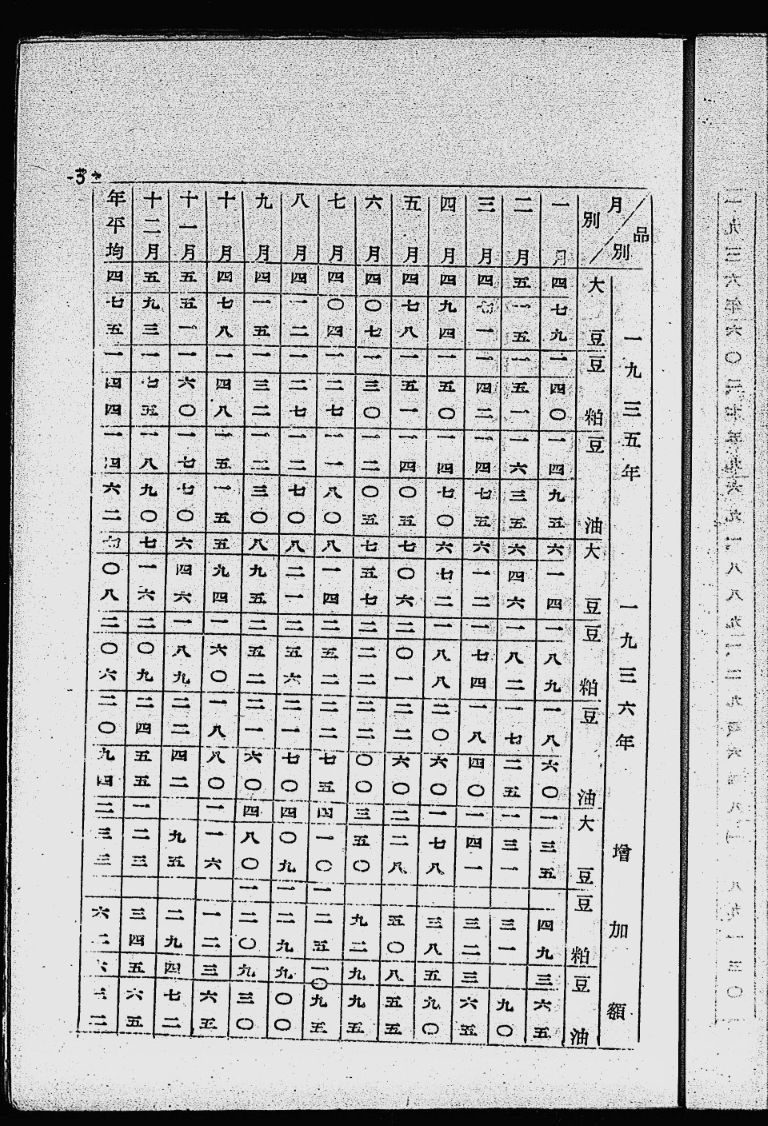 月別 品別
一九三五年 一九三六年 增加額
大豆 豆粕 豆油 大豆 豆粕 豆油 大豆 豆粕 豆油
一月 四七九 一四〇 一四九五 六一四 一八九 一八六〇 一三五 四九 三六五
二月 五一五 一五一 一六三五 六四六 一八二 一七二五 一三一 三一 九〇
三月 四七一 一四二 一四七五 六一二 一七四 一八四〇 一四一 三二 三六五
四月 四九四 一五〇 一四七〇 六七二 一八八 二〇六〇 一七八 三八 五九〇
五月 四七八 一五一 一四〇五 七〇六 二〇一 二二六〇 二二八 五〇 八五五
六月 四〇七 一三〇 一二〇五 七五七 二二二 二二〇〇 三五〇 九二 九九五
七月 四〇四 一二七 一一八〇 八一四 二五二 二二七五 四一〇 一二五 一〇九五
八月 四一二 一二七 一二七〇 八二一 二五六 二一七〇 四〇九 一二九 九〇〇
九月 四一五 一三二 一二三〇 八九五 二五二 二一六〇 四八〇 一二〇 九三〇
十月 四七八 一四八 一五一五 五九四 一六〇 一八八〇 一一六 一二 三六五
十一月 五五一 一六〇 一七七〇 六四六 一八九 二二四二 九五 二九 四七二
十二月 五九三 一七五 一八九〇 七一六 二〇九 二四五五 一二三 三四 五六五
年平均 四七五 一四四 一四六二 七〇八 二〇六 二〇九四 二三三 六二 六三二